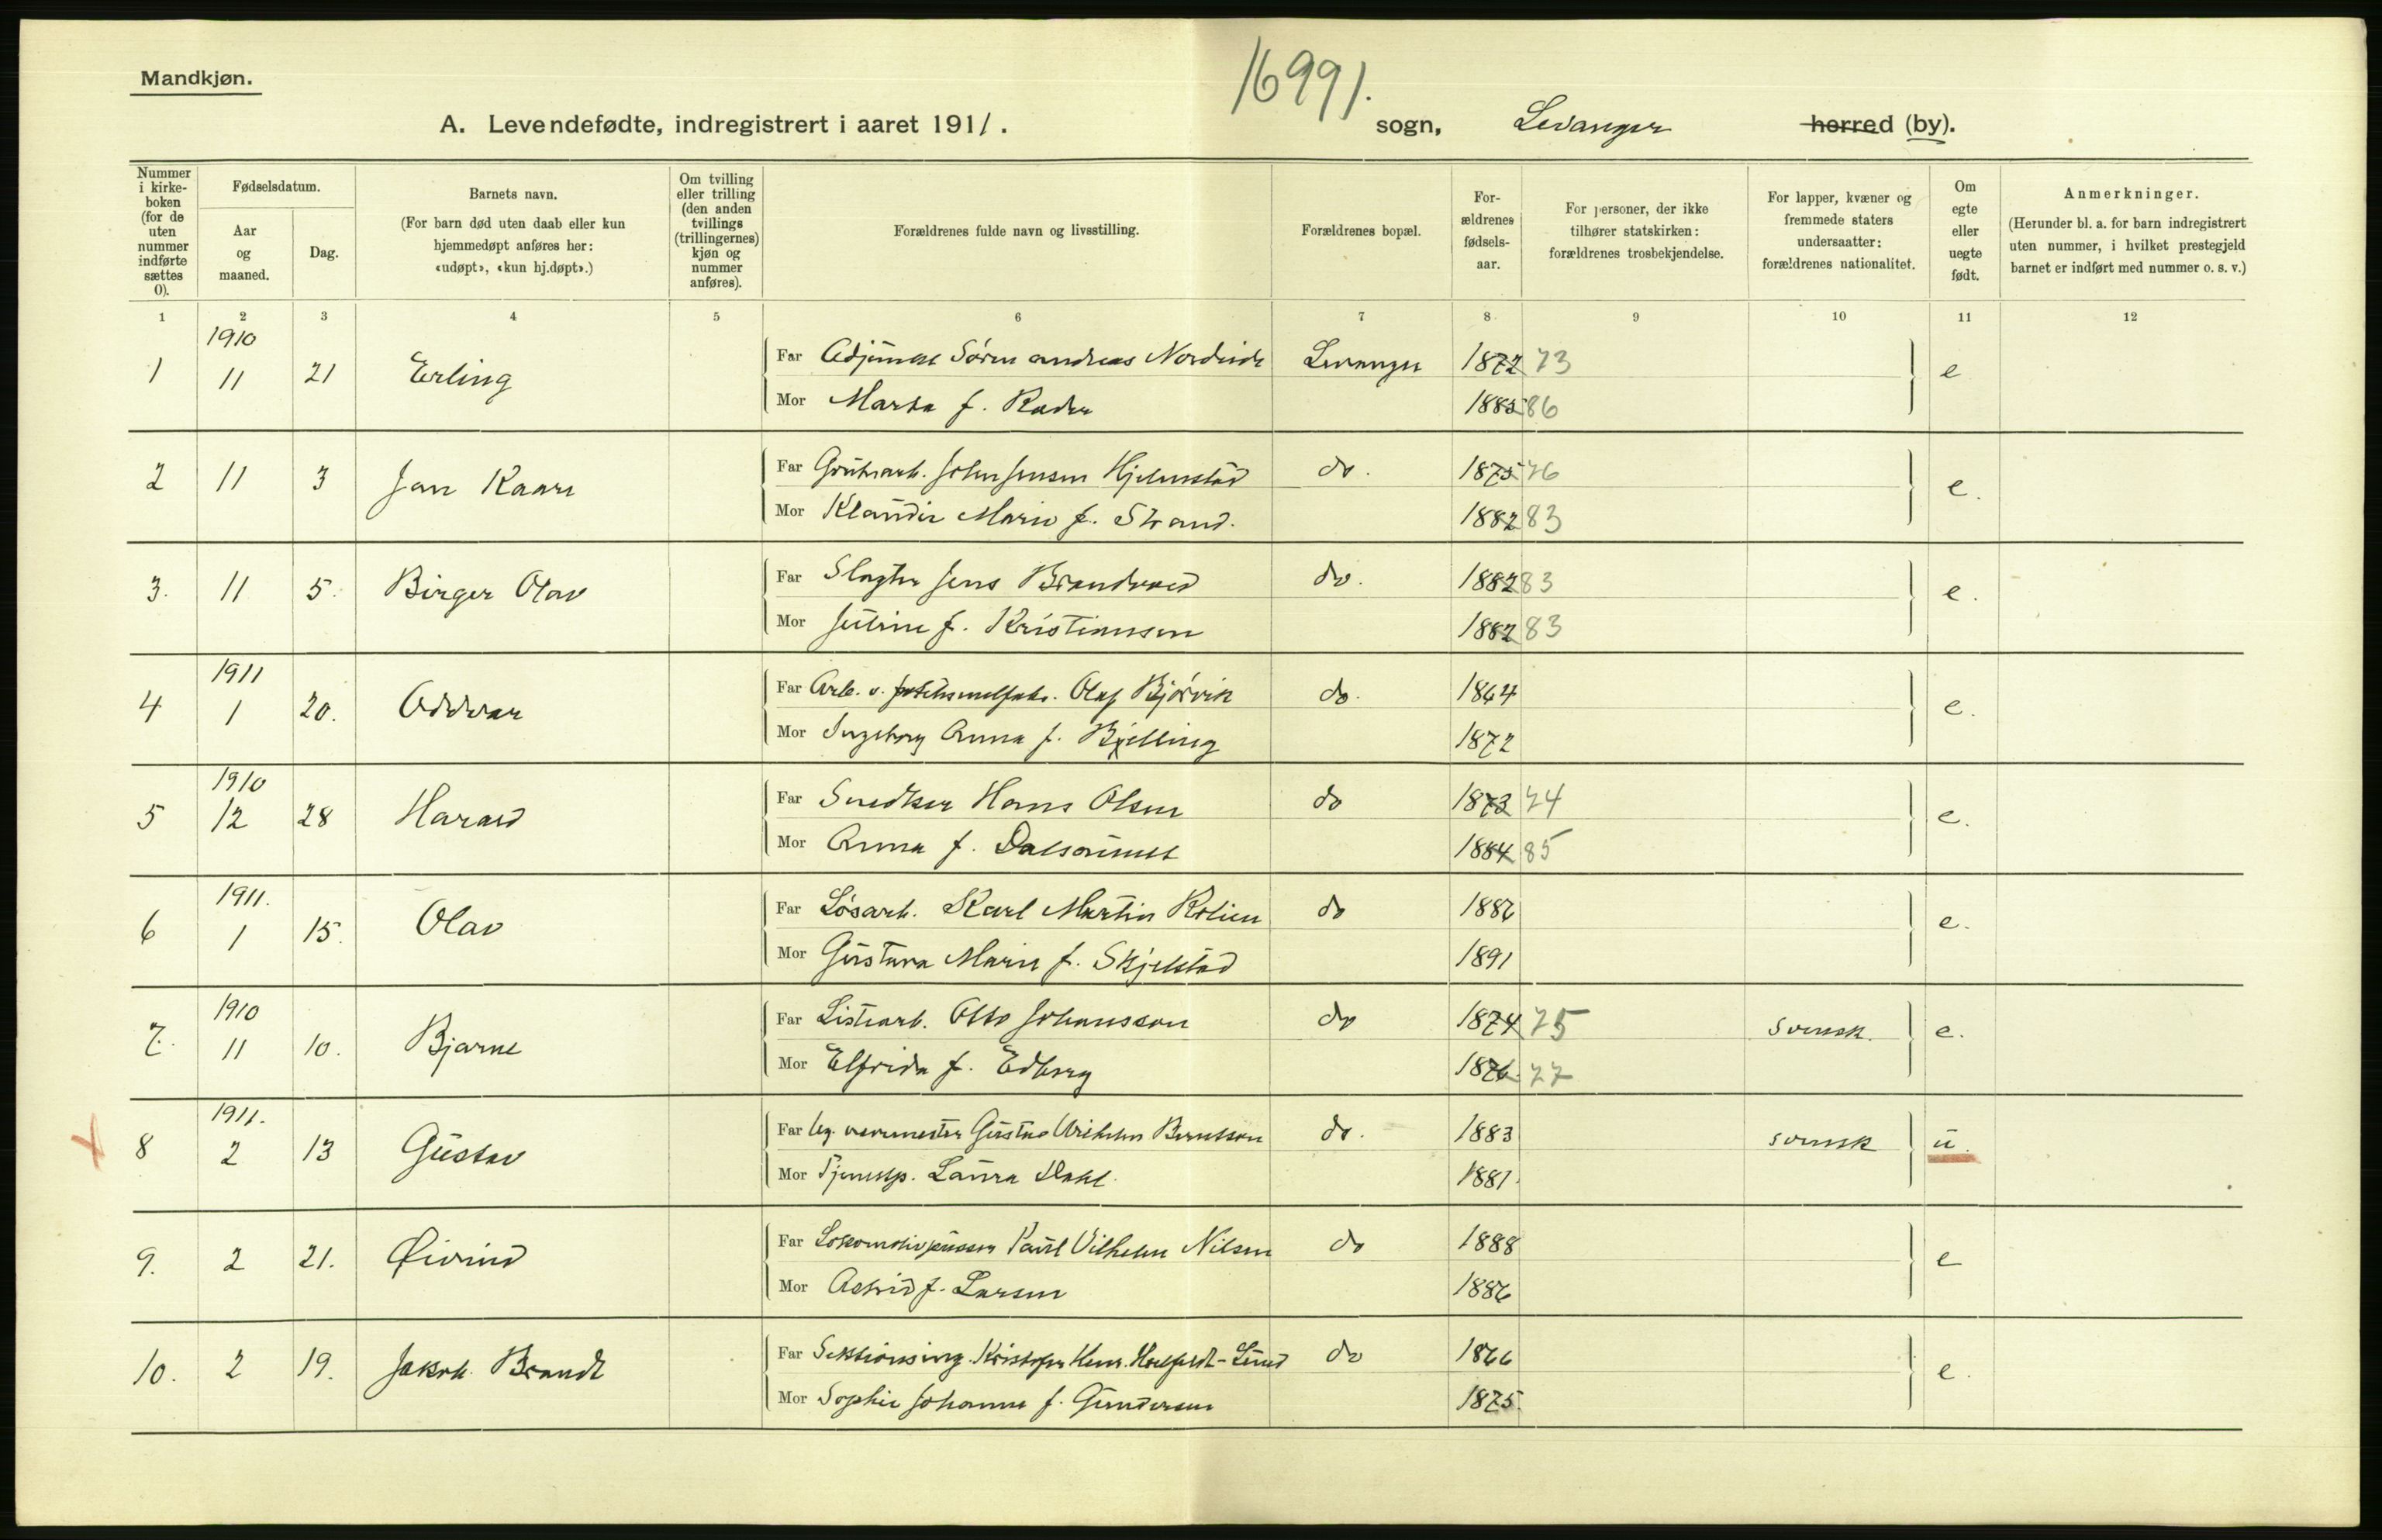 Mandkjøn.
16991.
A. Levendefødte, indregistrert i aaret 1911. sogn, Levanger herred (by).
Nummer i kirkeboken (for de uten nummer indførte sættes 0).
Fødselsdatum.
Aar og maaned.
Dag.
Barnets navn.
(For barn død uten daab eller kun hjemmedøpt anføres her: «udøpt», «kun hj.døpt».)
Om tvilling eller trilling (den anden tvillings (trillingernes) kjøn og nummer anføres).
Forældrenes fulde navn og livsstilling.
Forældrenes bopæl.
For-ældrenes fødsels-aar.
For personer, der ikke tilhører statskirken: forældrenes trosbekjendelse.
For lapper, kvæner og fremmede staters undersaatter: forældrenes nationalitet.
Om egte eller uegte født.
Anmerkninger.
(Herunder bl. a. for barn indregistrert uten nummer, i hvilket prestegjeld barnet er indført med nummer o. s. v.)
1 2 3 4 5 6 7 8 9 10 11 12
1910
1 11 21 Erling Far Adjunkt Søren Andreas Nordeide Levanger 1872 73 e
Mor Marta f. Rader 1885 86
2 11 3 Jan Kaare Far John Jensen Hjelmstad do. 1875 76 e.
Mor Klaudie Marie f. Strand. 1882 83
3. 11 5. Birger Olav Far Slagter Jens Brandvold do. 1882 83 e.
Mor Juline f. Kristiansen 1882 83
1911
4 1 20. Oddvar Far Arb. v. Olaf Bjørvik do. 1864 e.
Mor Ingeborg Anna f. Bjelling 1872
1910
5 12 28 Harald Far Snedker Hans Olsen do 1873 74 e.
Mor Anna f. Dalsaunet 1884 85
1911.
6 1 15. Olav Far Løsarb. Karl Martin Rolien do 1886 e.
Mor Gustava Marie f. Skjelstad 1891
1910
7. 11 10. Bjarne Far Listearb. Otto Johansson do 1874 75 svensk. e.
Mor Elfrida f. Edberg 1876. 77
1911.
8 2 13 Gustav Far Ug. verkmester Gustav Wilhelm Berntsson do. 1883 svensk u.
Mor Tjenestp. Laura Dahl. 1881.
9. 2 21. Øivind Far Lokomotivpusser Paul Vilhelm Nilsen do 1888 e
Mor Astrid f. Larsen 1886
10. 2 19. Jakob Brandt Far Sektionsing. Kristofer Henr. Holfeldt-Lund do 1866 e.
Mor Sophie Johanne f. Gundersen 1875.